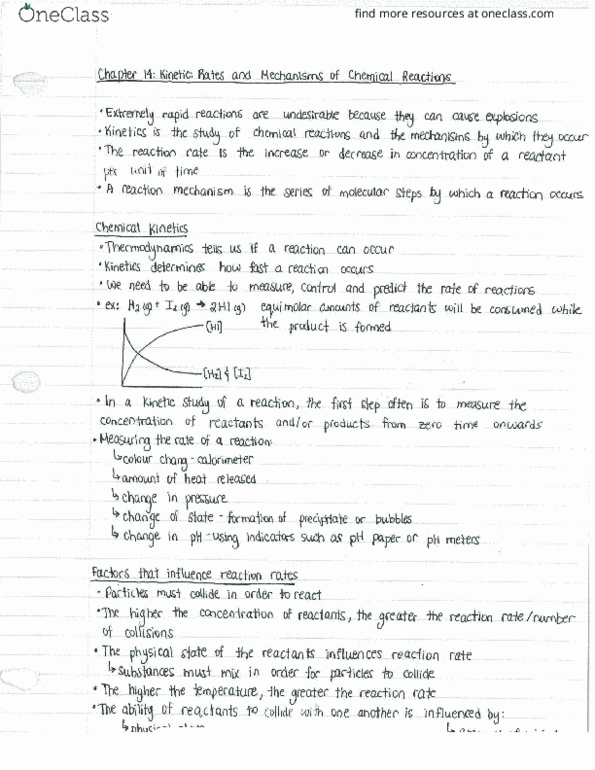 OneClass
find more resources at oneclass.com
Chapter 14: Kinetic: Rates and Mechanisms of Chemical Reactions
• Extremely rapid reactions are undesirable because they can cause explosions
• Kinetics is the study of chemical reactions and the mechanisms by which they occur
• The reaction rate is the increase or decrease in concentration of a reactant
per unit of time
• A reaction mechanism is the series of molecular steps by which a reaction occurs
Chemical Kinetics
• Thermodynamics tells us if a reaction can occur
• Kinetics determines how fast a reaction occurs
• We need to be able to measure, control and predict the rate of reactions
• ex: H₂(g) + I₂(g) → 2HI(g) equimolar amounts of reactants will be consumed while
the product is formed
[HI]
[H₂] & [I₂]
• In a kinetic study of a reaction, the first step often is to measure the
concentration of reactants and/or products from zero time onwards
• Measuring the rate of a reaction:
↳ colour chang - calorimeter
↳ amount of heat released
↳ change in pressure
↳ change of state - formation of precipitate or bubbles
↳ change in pH - using indicators such as pH paper or pH meters
Factors that influence reaction rates
• Particles must collide in order to react
• The higher the concentration of reactants, the greater the reaction rate/number
of collisions
• The physical state of the reactants influences reaction rate
↳ substances must mix in order for particles to collide
• The higher the temperature, the greater the reaction rate
• The ability of reactants to collide with one another is influenced by: